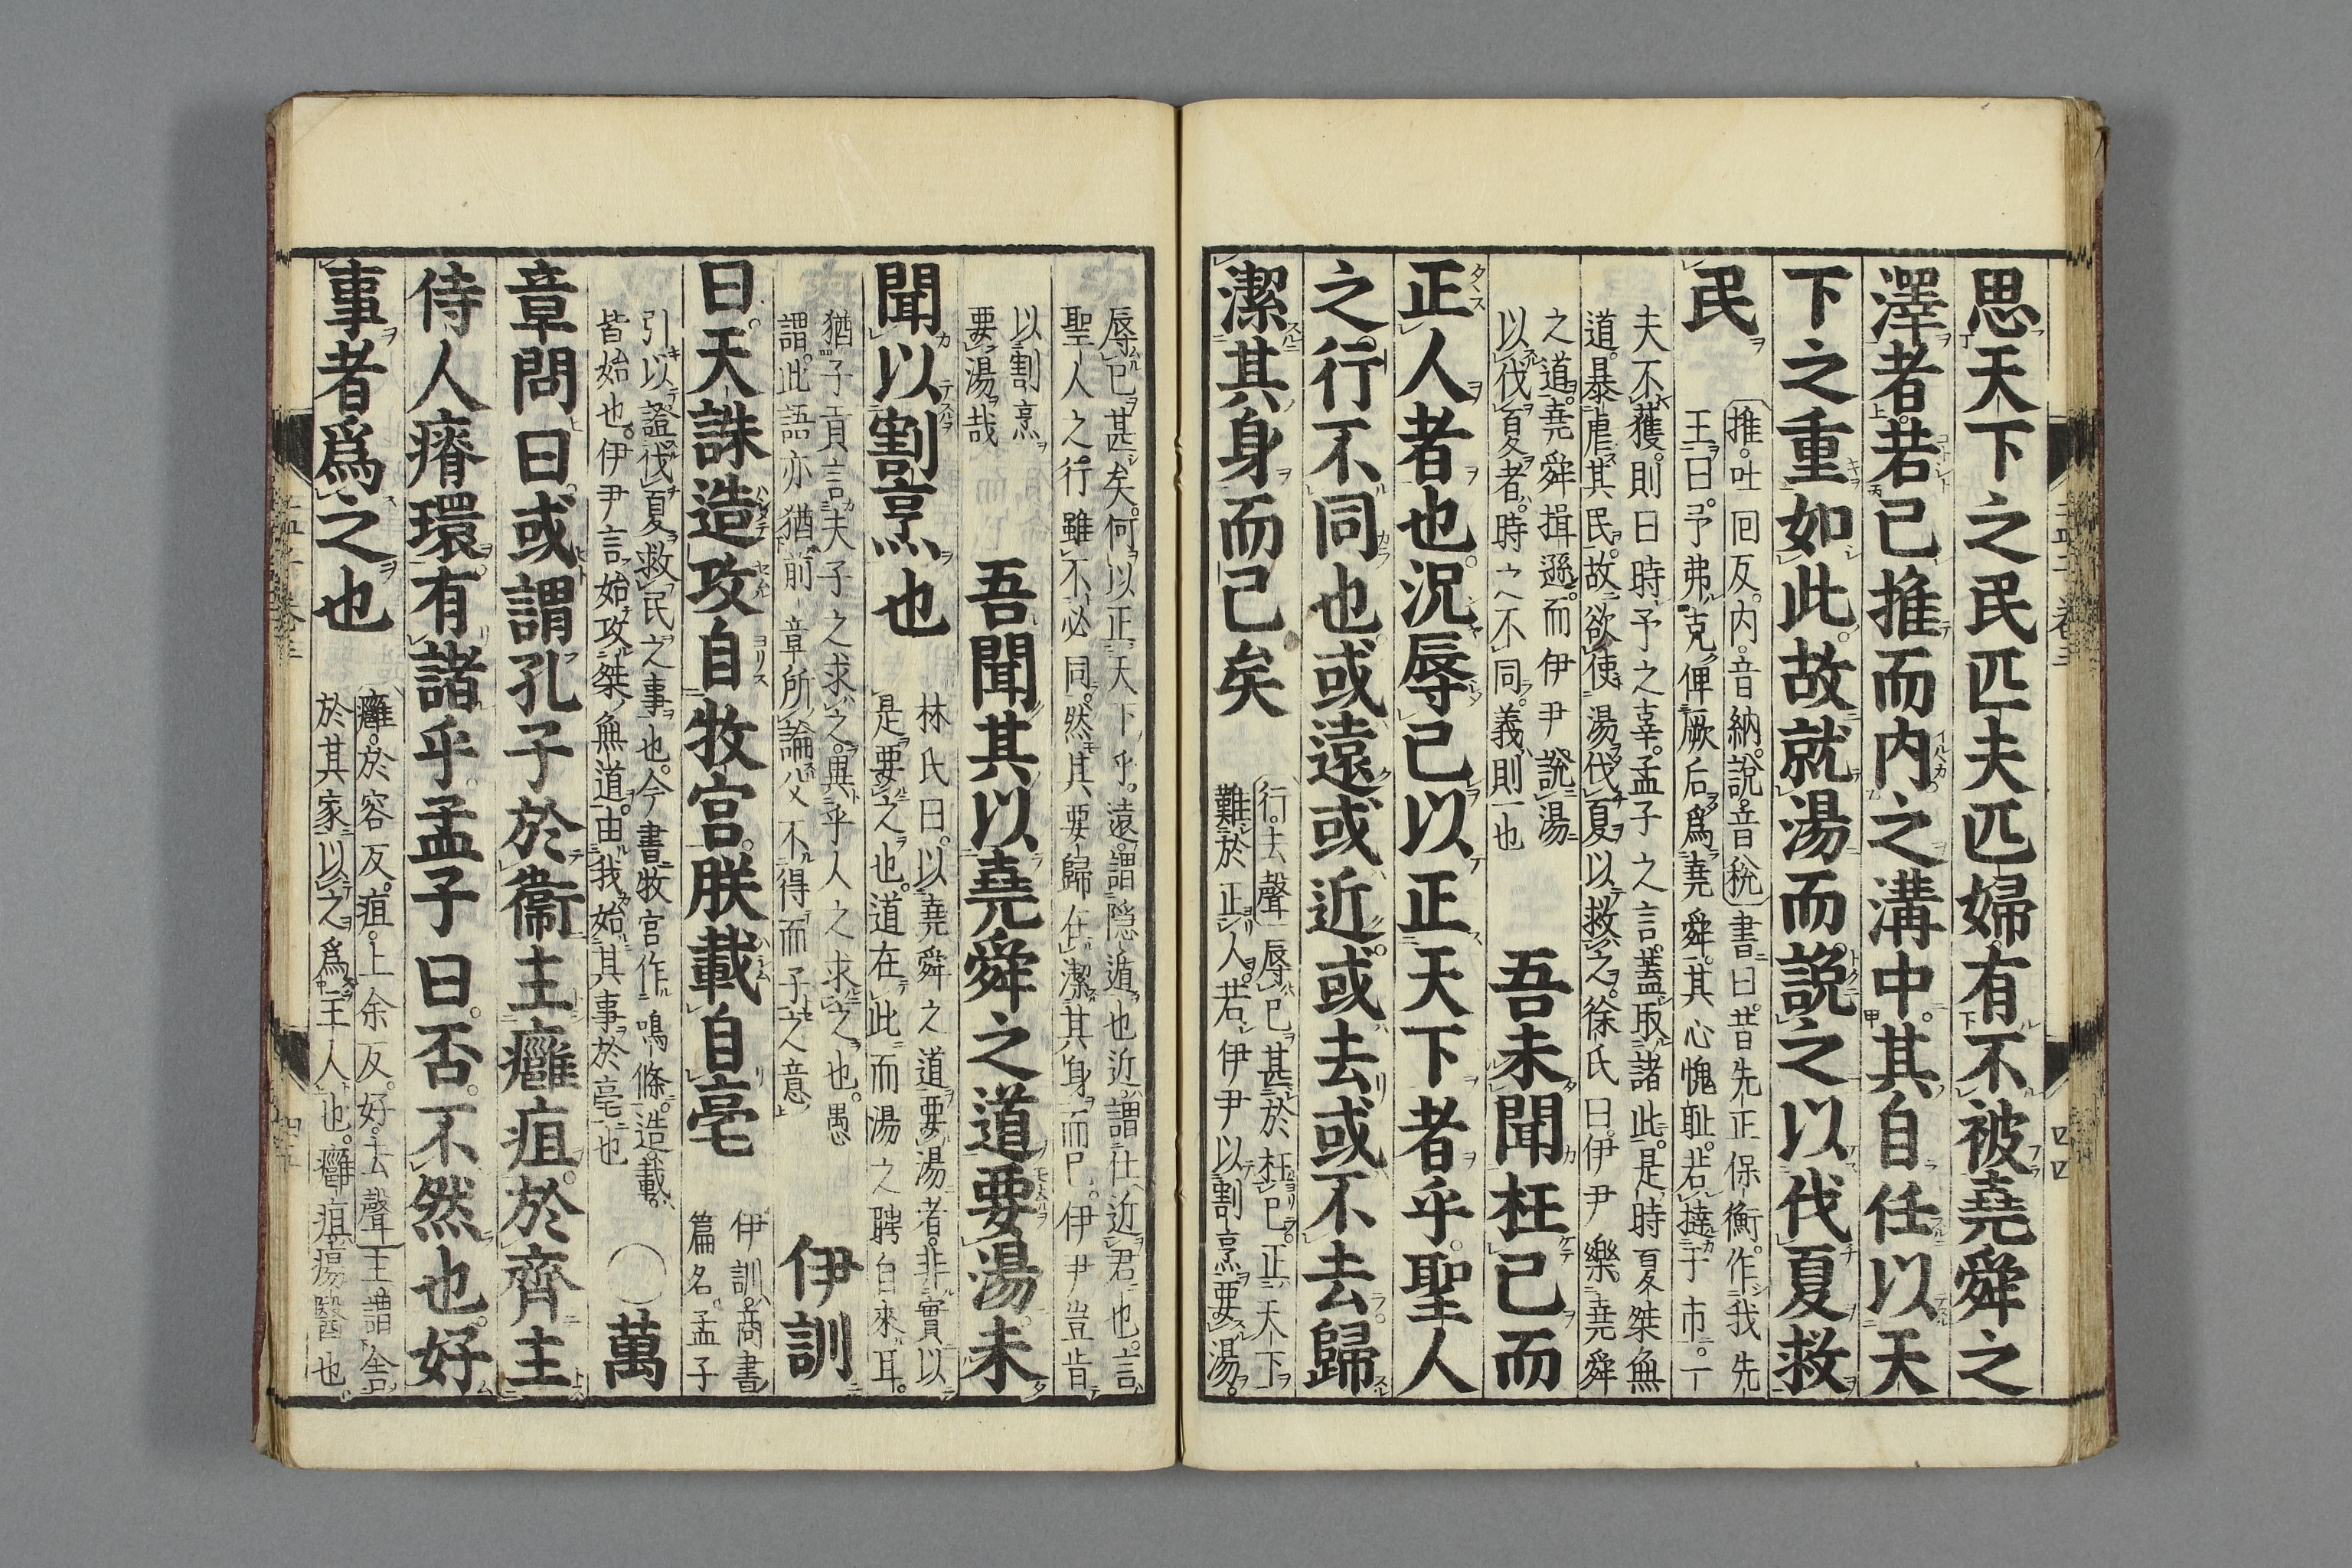 思天下之民匹夫匹婦有不被堯舜之
澤者若己推而内之溝中其自任以天
下之重如此故就湯而說之以伐夏救
民
推。吐回反。内。音納。說。音稅。書曰。昔先正保衡。作我先
王。曰。予弗克俾厥后爲堯舜。其心愧耻。若撻于市。一
夫不獲。則曰時予之辜。孟子之言。蓋取諸此。是時夏桀無
道。暴虐其民。故欲使湯伐夏以救之。徐氏曰。伊尹樂堯舜
之道。堯舜揖遜。而伊尹說湯
以伐夏者。時之不同。義則一也
吾未聞枉己而
正人者也。況辱己以正天下者乎。聖人
之行不同也。或遠或近。或去或不去。歸
潔其身而已矣
行。去聲。辱己甚於枉己。正天下
難於正人。若伊尹以割烹要湯。
辱己甚矣。何以正天下乎。遠。謂隠遁也。近。謂仕近君也。言
聖人之行雖不必同。然其要歸在潔其身而已。伊尹豈肯
以割烹
要湯哉
吾聞其以堯舜之道要湯。未
聞以割烹也
林氏曰。以堯舜之道要湯者。非實以
是要之也。道在此而湯之聘自來耳。
猶子貢言夫子之求之。異乎人之求之也。愚
謂。此語亦猶前章所論父不得而子之意
伊訓
曰。天誅造攻自牧宮。朕載自亳
伊訓。商書
篇名。孟子
引以證伐夏救民之事也。今書牧宮作鳴條。造載。
皆始也。伊尹言始攻桀無道。由我始其事於亳也
○萬
章問曰。或謂孔子於衞主癰疽。於齊主
侍人瘠環。有諸乎。孟子曰。否。不然也。好
事者爲之也
癰。於容反。疽。七余反。好。去聲。主。謂舍
於其家。以之爲主人也。癰疽。瘍醫也。